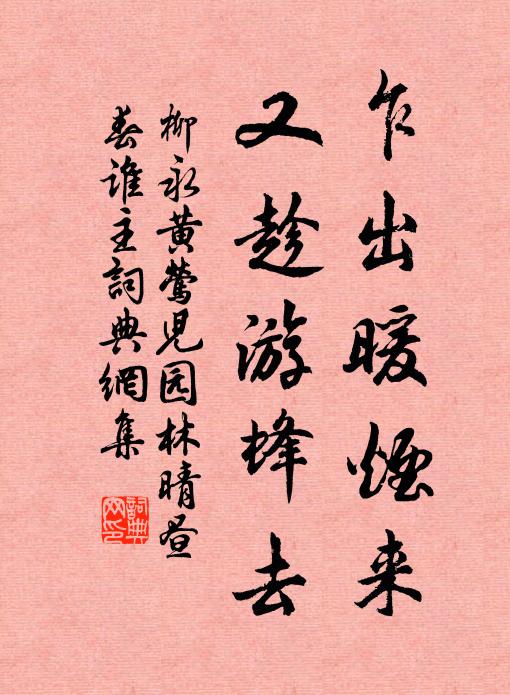 乍出暖煙来
又趁游蜂去
柳永黄鶯児园林晴昼
春谁主詞典網集
詞典网印